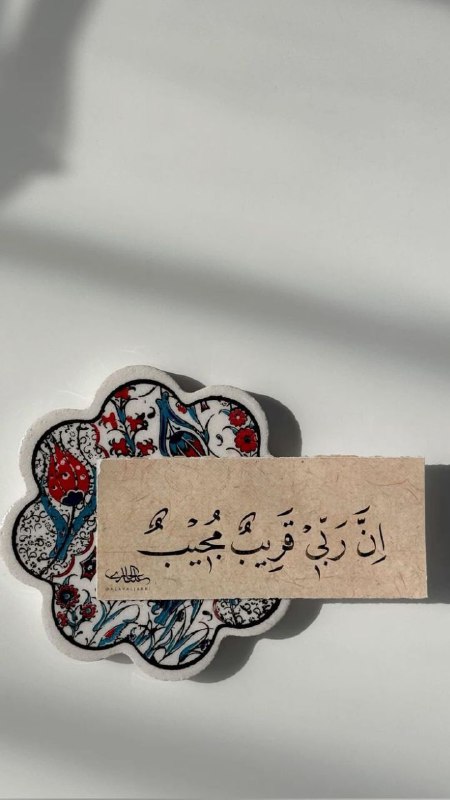 اِنَّ رَبّٖي قَرٖيبٌ مُجٖيبٌ